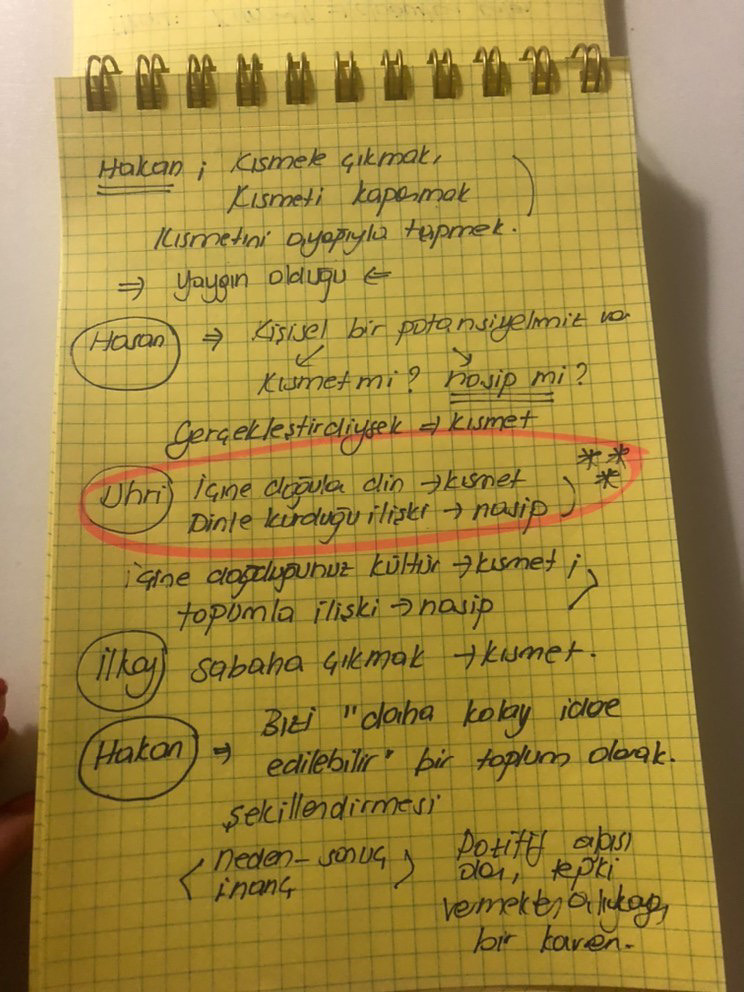 Hakan ; Kısmek çıkmak,
Kısmeti kapamak
Kısmetini ayağıyla tepmek.
⇒ yaygın olduğu ⇐
Hasan ⇒ Kişisel bir potansiyelmiz var
Kısmet mi? nasip mi?
Gerçekleştirdiysek ⇒ kısmet
Uhri içine doğula din → kısmet
Dinle kurduğu ilişki → nasip
içine doğduğunuz kültür → kısmet ;
toplumla ilişki → nasip
İlkay sabaha çıkmak → kısmet.
Hakan ⇒ Bizi "daha kolay idae
edilebilir" bir toplum olarak.
şekillendirmesi
neden-sonuç
inanç
Pozitif
tepki
bir